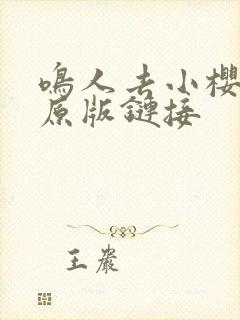 鳴人去小櫻
原版鏈接
王嚴